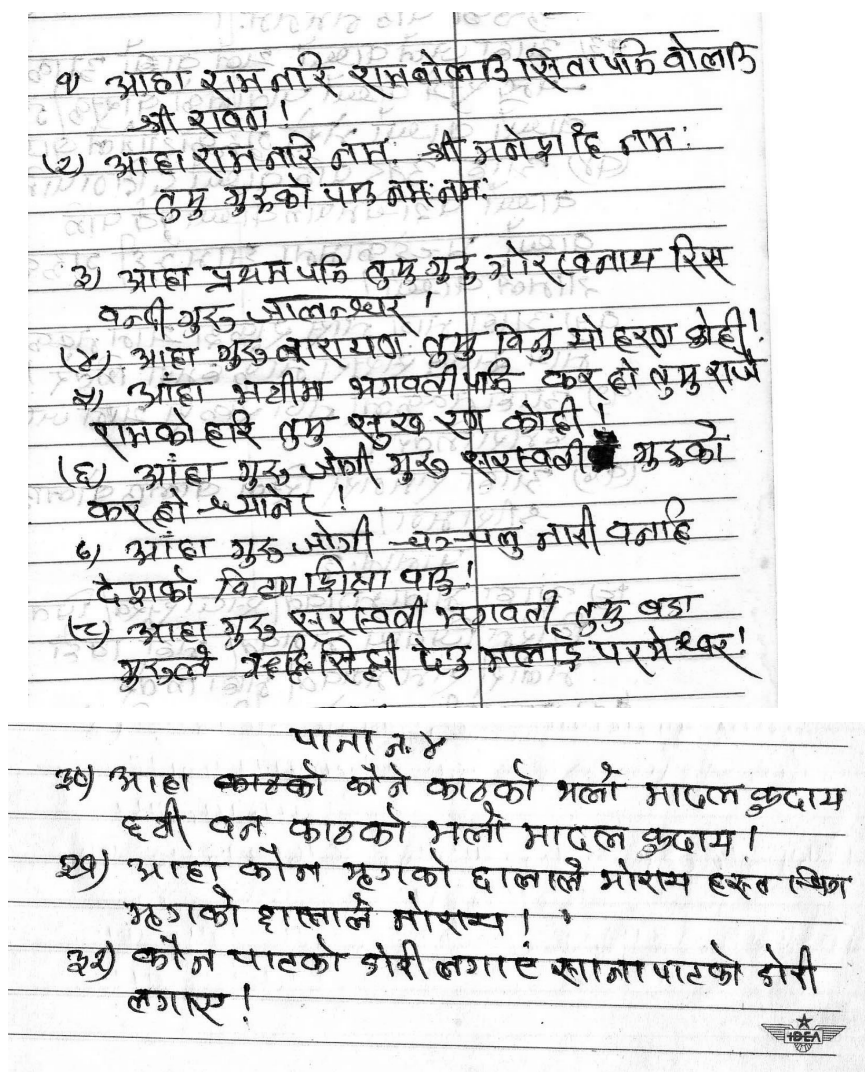 १ आहा राम नारि राम बोलाउ सितापति बोलाउ
श्री रावण!
(२) आहा राम नारि नमः श्री गनेशाहि नमः
तुमु गुरुको पाउ नमः नमः
३) आहा प्रथम पति तुमु गुरु गोरखनाथ रिस
वन्दी गुरु जालन्श्वर!
(४) आहा गुरु नारायण तुमु विनु यो हरण कोही!
५) आँहा भयीमा भगवती पति कर हो तुमु राजै
रामको हरि तुमु सुख रण कोही!
(६) आँहा गुरु जोगी गुरु सरस्वती गुरुको
कर हो ध्यानेट!
७) आँहा गुरु जोगी चञ्चलु नारी वनहि
देशको विद्या शिक्षा पाउ!
(८) आहा गुरु सरस्वती भगवती तुमु बडा
गुरुले सिद्दी देउ मलाई परमेश्वर!
पाना न. ४
३०) आहा कौने काठको भलो मादल कुदाय
छमी वन काठको भलो मादल कुदाय।
३१) आहा कौन मृगको छालाले मोराय
मृगको छालाले मोराय!
३२) कौन पाटको डोरी लगाए साना पाटको डोरी
लगाए!
IDEA